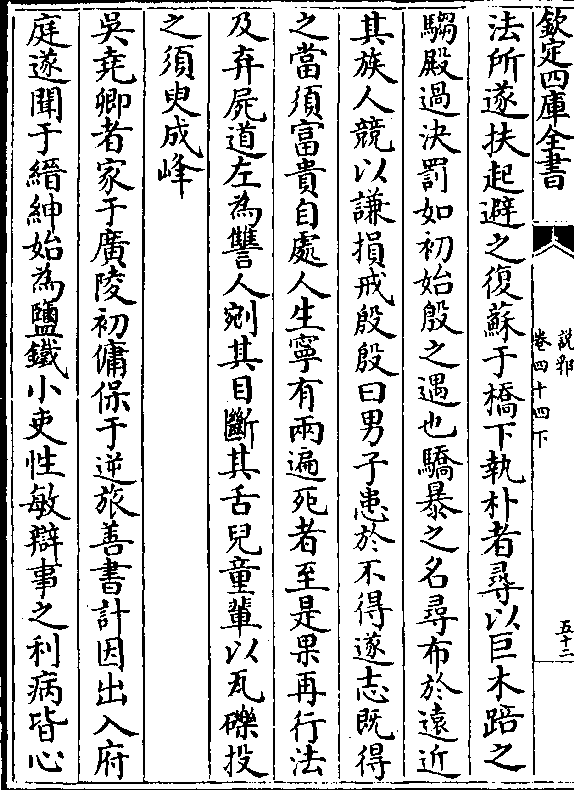 欽定四庫全書
說郛
卷四十四下
五十二
法所遂扶起避之復蘇于橋下執朴者尋以巨木踣之
騶殿過決罰如初始殷之遇也驕暴之名尋布於遠近
其族人競以謙損戒殷殷曰男子患於不得遂志既得
之當須富貴自處人生寧有兩遍死者至是果再行法
及弃屍道左為讐人剜其目斷其舌兒童輩以瓦礫投
之須臾成峰
吳堯卿者家于廣陵初傭保于逆旅善書計因出入府
庭遂聞于縉紳始為鹽鐵小吏性敏辯事之利病皆心